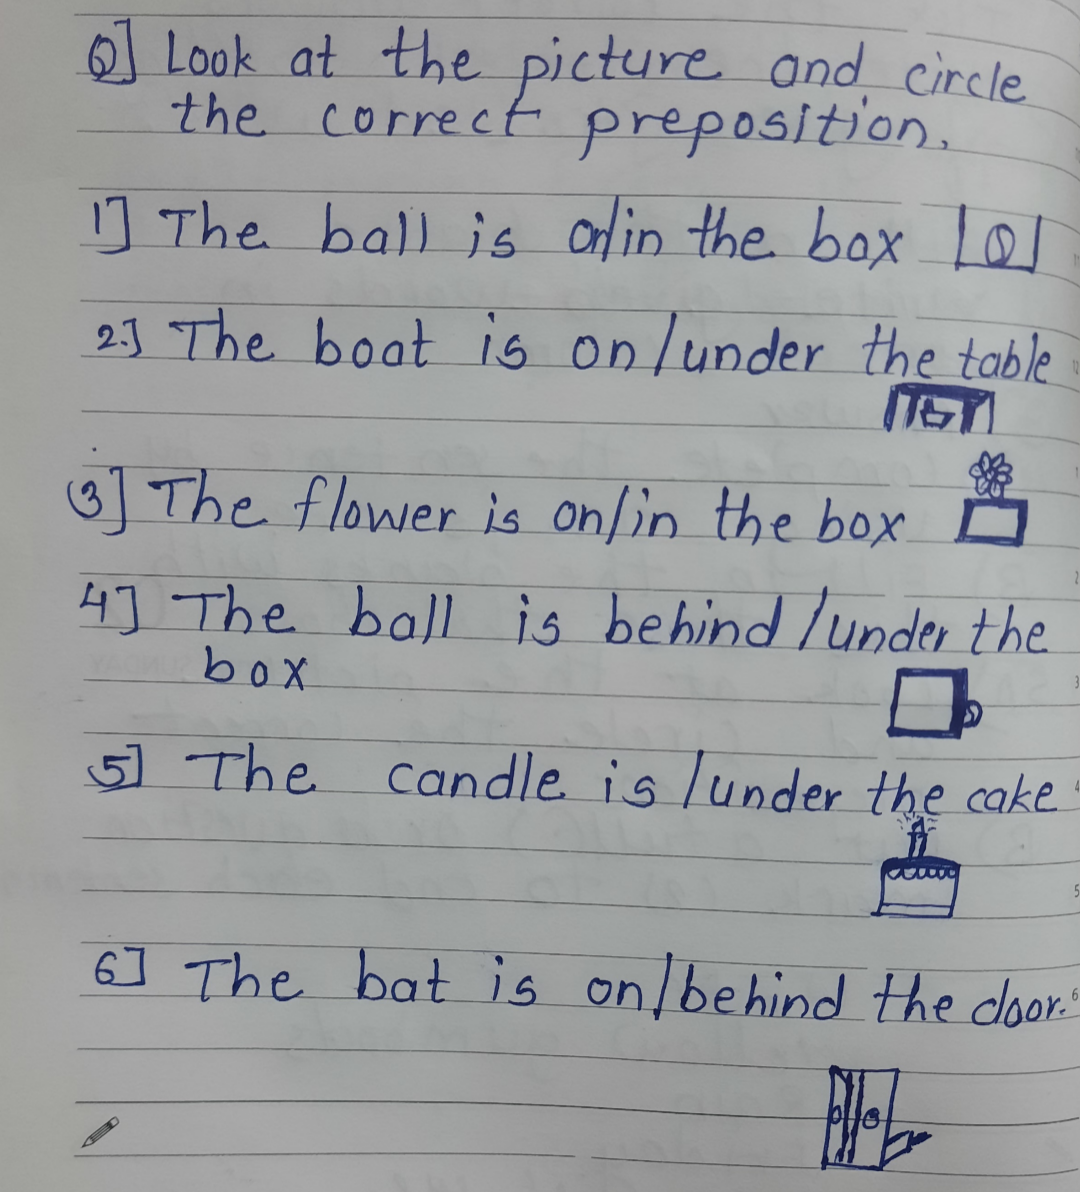 Q] Look at the picture and circle
the correct preposition.
1] The ball is on/in the box
2.] The boat is on/under the table
3] The flower is on/in the box
4] The ball is behind/under the
box
5] The candle is/under the cake
6] The bat is on/behind the door.